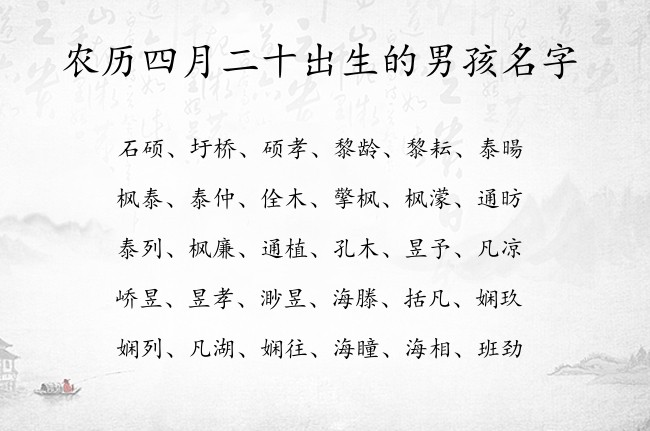 农历四月二十出生的男孩名字
石硕、圩桥、硕孝、黎龄、黎耘、泰暘
枫泰、泰仲、佺木、擎枫、枫濛、通昉
泰列、枫廉、通植、孔木、昱予、凡凉
峤昱、昱孝、渺昱、海滕、括凡、娴玖
娴列、凡湖、娴往、海瞳、海相、班劲